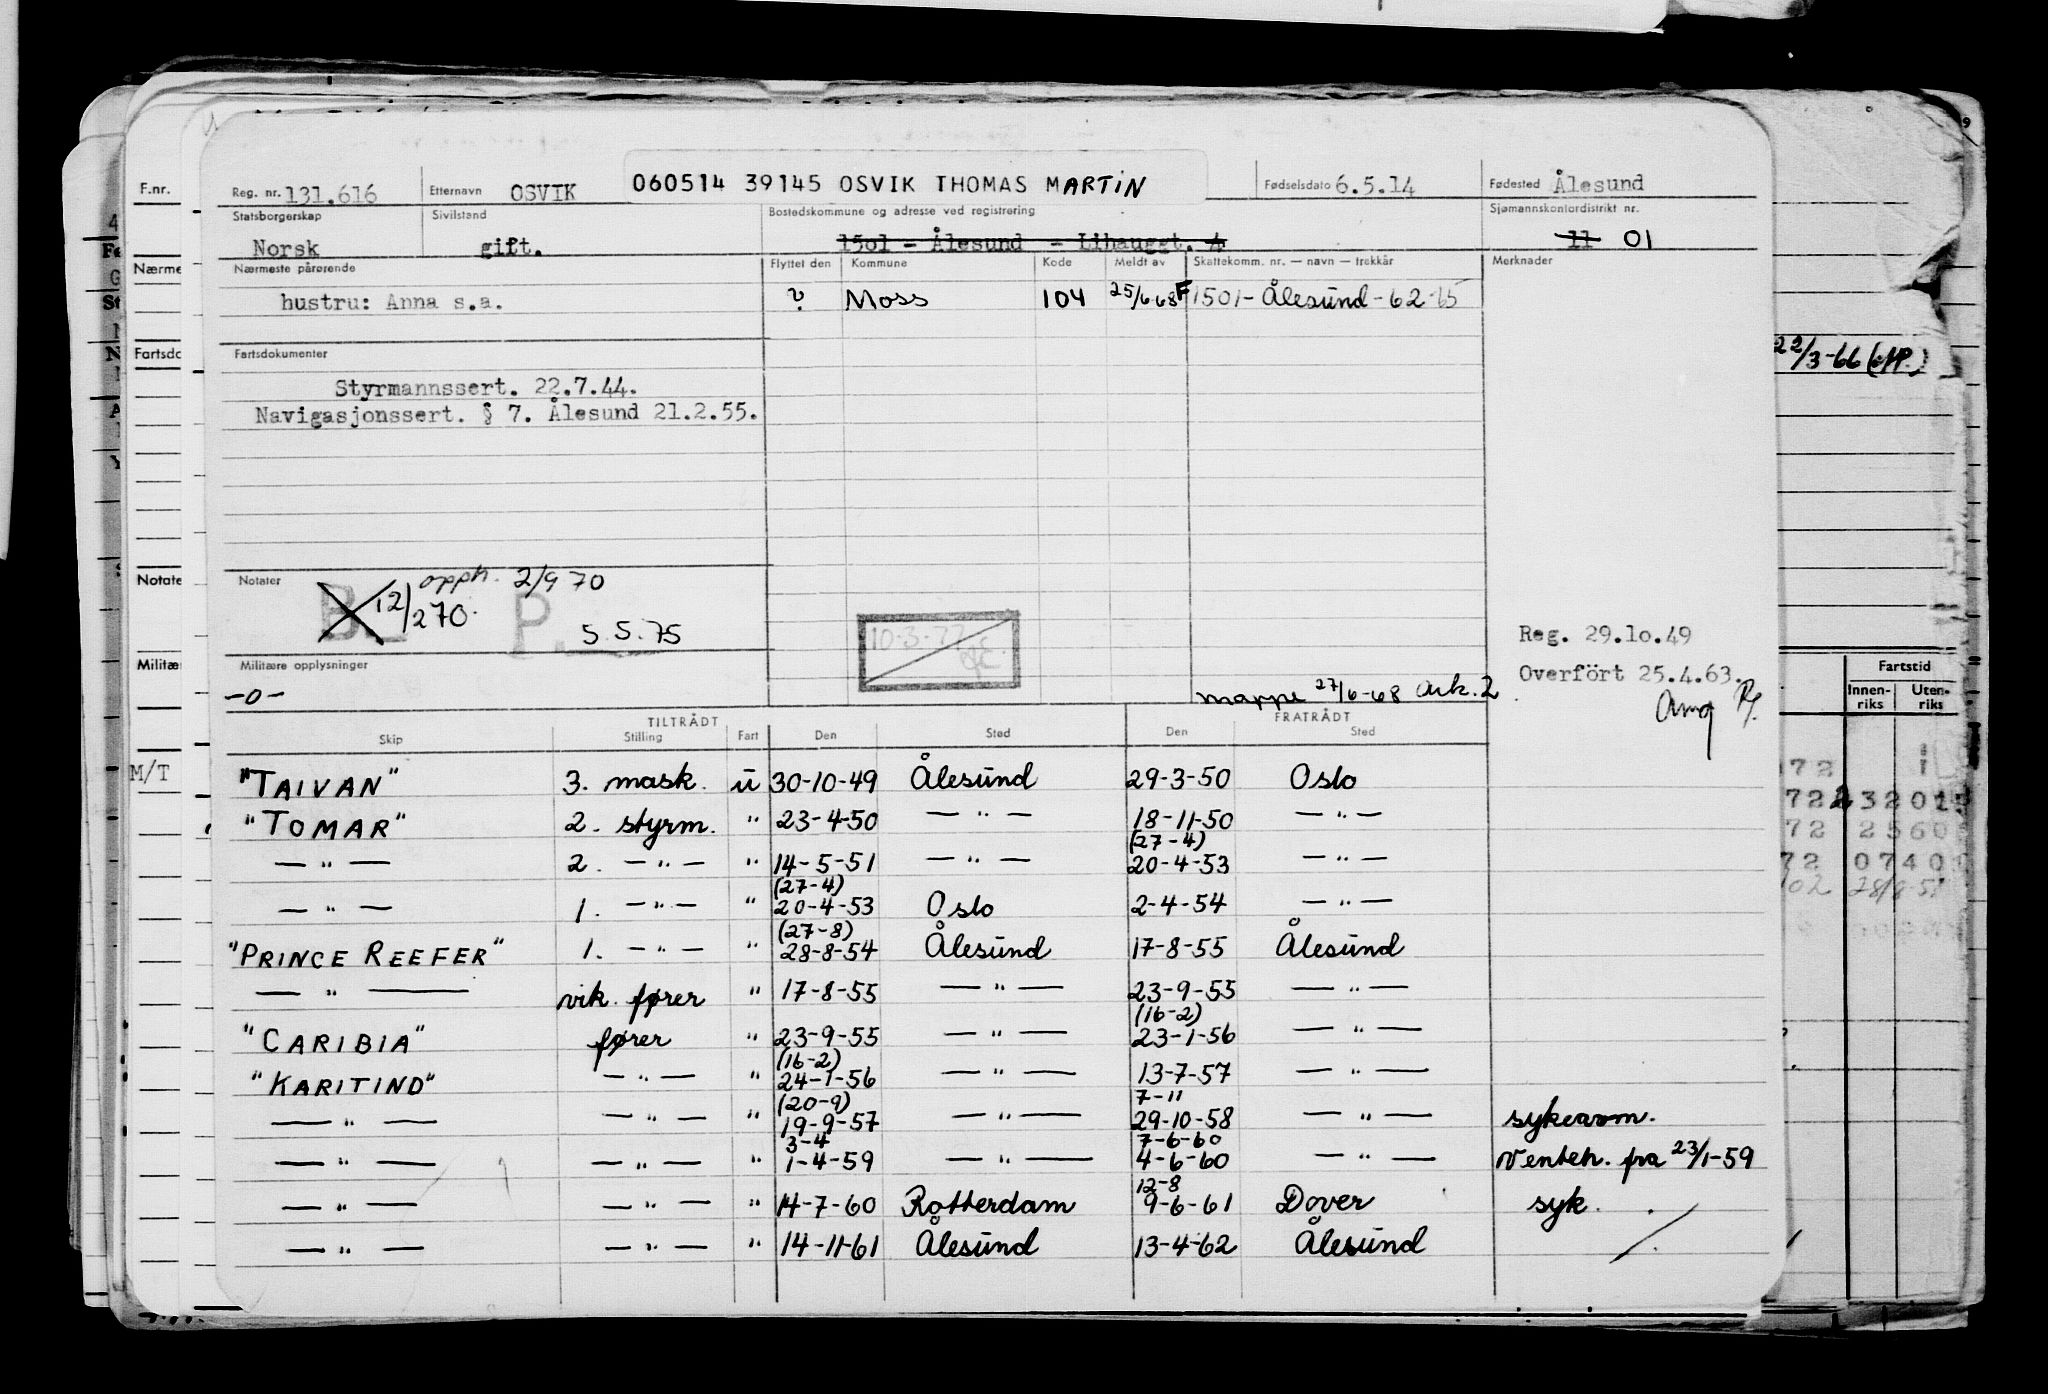 F.nr.
Reg. nr. 131.616 Etternavn OSVIK 060514 39145 OSVIK THOMAS MARTIN Fødselsdato 6.5.14 Fødested Ålesund
Statsborgerskap Sivilstand Bostedskommune og adresse ved registrering Sjømannskontordistrikt nr.
Norsk gift. 1501 - Ålesund - Lihauggt. 4 11 01
Nærme Nærmeste pårørende Flyttet den Kommune Kode Meldt av Skattekomm. nr. — navn — trekkår Merknader
hustru: Anna s.a. ? Moss 104 25/6-68 F 1501 - Ålesund - 62-65
Fartsdo Fartsdokumenter
22/3-66
Styrmannssert. 22.7.44.
Navigasjonssert. § 7. Ålesund 21.2.55.
Notate Notater
oppg. 2/9 70
B 12/270.
P. 5.5.75
10-3-77
Reg. 29.10.49
Militæ Militære opplysninger
Overført 25.4.63.
-0-
mappe 27/6-68 Ark. 2
Fartstid
Innen-riks Uten-riks
TILTRÅDT FRATRÅDT
Skip Stilling Fart Den Sted Den Sted
M/T
"TAIVAN" 3. mask. u 30-10-49 Ålesund 29-3-50 Oslo
"TOMAR" 2. styrm. " 23-4-50 — " — 18-11-50 — " —
(27-4)
— " — 2. — " — " 14-5-51 — " — 20-4-53 — " —
(27-4)
— " — 1. — " — " 20-4-53 Oslo 2-4-54 — " —
(27-8)
"PRINCE REEFER" 1. — " — " 28-8-54 Ålesund 17-8-55 Ålesund
— " — vik. fører " 17-8-55 — " — 23-9-55 — " —
(16-2)
"CARIBIA" fører " 23-9-55 — " — 23-1-56 — " —
(16-2)
"KARITIND" — " — " 24-1-56 — " — 13-7-57 — " —
(20-9) 7-11
— " — — " — " 19-9-57 — " — 29-10-58 — " — sykeavm.
3-4 7-6-60
— " — — " — " 1-4-59 — " — 4-6-60 — " — Venteh. fra 23/1-59
12-8
— " — — " — " 14-7-60 Rotterdam 9-6-61 Dover syk.
— " — — " — " 14-11-61 Ålesund 13-4-62 Ålesund